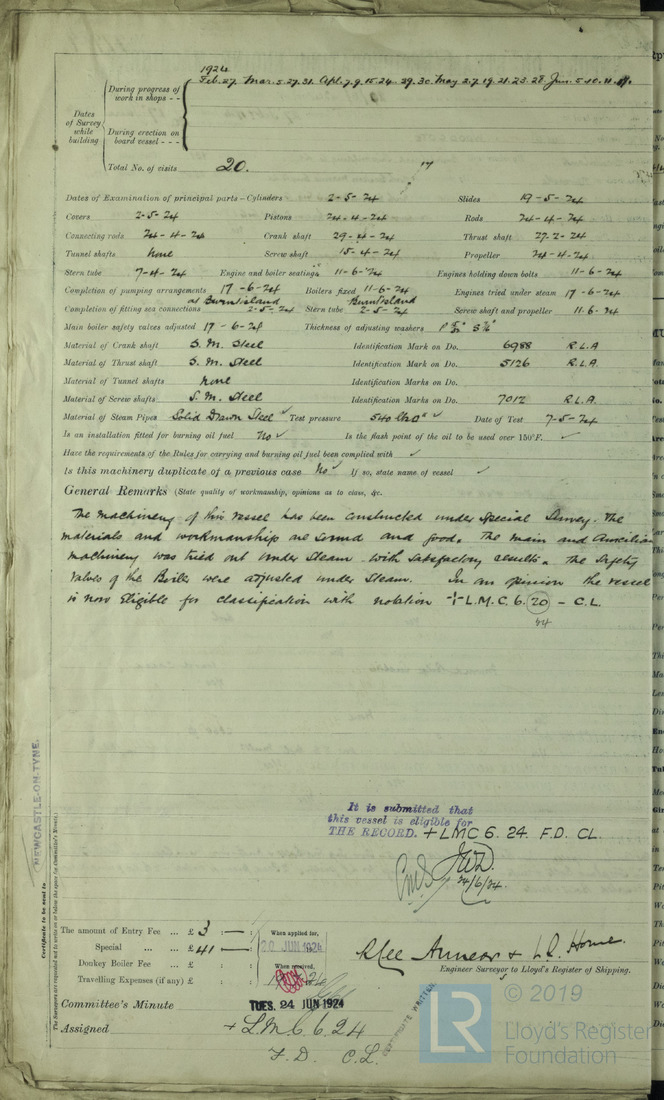 1924
During progress of work in shops - - Feb. 27. Mar. 5. 27. 31. Apl. 7. 9. 15. 24. 29. 30. May 2. 7. 19. 21. 23. 28. Jun. 5. 10. 11. 17.
Dates of Survey while building
During erection on board vessel - - -
Total No. of visits 20. 17
Dates of Examination of principal parts—Cylinders 2-5-24 Slides 19-5-24
Covers 2-5-24 Pistons 24-4-24 Rods 24-4-24
Connecting rods 24-4-24 Crank shaft 29-4-24 Thrust shaft 27-2-24
Tunnel shafts None Screw shaft 15-4-24 Propeller 24-4-24
Stern tube 7-4-24 Engine and boiler seatings 11-6-24 Engines holding down bolts 11-6-24
Completion of pumping arrangements 17-6-24 Boilers fixed 11-6-24 Engines tried under steam 17-6-24
at Burntisland Burntisland
Completion of fitting sea connections 2-5-24 Stern tube 2-5-24 Screw shaft and propeller 11-6-24
Main boiler safety valves adjusted 17-6-24 Thickness of adjusting washers
Material of Crank shaft S. M. Steel Identification Mark on Do. 6988 R.L.A
Material of Thrust shaft S. M. Steel Identification Mark on Do. 5126 R.L.A
Material of Tunnel shafts None Identification Marks on Do.
Material of Screw shafts S. M. Steel Identification Marks on Do. 7012 R.L.A.
Material of Steam Pipes Solid Drawn Steel ✓ Test pressure 540 lbs □" ✓ Date of Test 7-5-24
Is an installation fitted for burning oil fuel No ✓ Is the flash point of the oil to be used over 150°F. ✓
Have the requirements of the Rules for carrying and burning oil fuel been complied with ✓
Is this machinery duplicate of a previous case No ✓ If so, state name of vessel ✓
General Remarks (State quality of workmanship, opinions as to class, &c.
The machinery of this vessel has been constructed under Special Survey. The
materials and workmanship are sound and good. The main and Auxiliary
machinery was tried out under Steam with satisfactory results. The Safety
Valves of the Boiler were adjusted under Steam. In our opinion the vessel
is now Eligible for classification with notation + L.M.C. 6. 20 - C.L.
24
NEWCASTLE-ON-TYNE.
Certificate to be sent to
The Surveyors are requested not to write on or below the space for Committee's Minute.
It is submitted that
this vessel is eligible for
THE RECORD. + LMC 6. 24. F.D. CL.
24/6/24.
The amount of Entry Fee ... £ 3 : — :
Special ... ... £ 41 : — :
Donkey Boiler Fee ... £ : :
Travelling Expenses (if any) £ : :
When applied for,
20 JUN 1924
When received,
Engineer Surveyor to Lloyd's Register of Shipping.
Committee's Minute TUES. 24 JUN 1924
Assigned + L.M.C. 6. 24
F.D. C.L.
CERTIFICATE WRITTEN
LR
© 2019
Lloyd's Register
Foundation